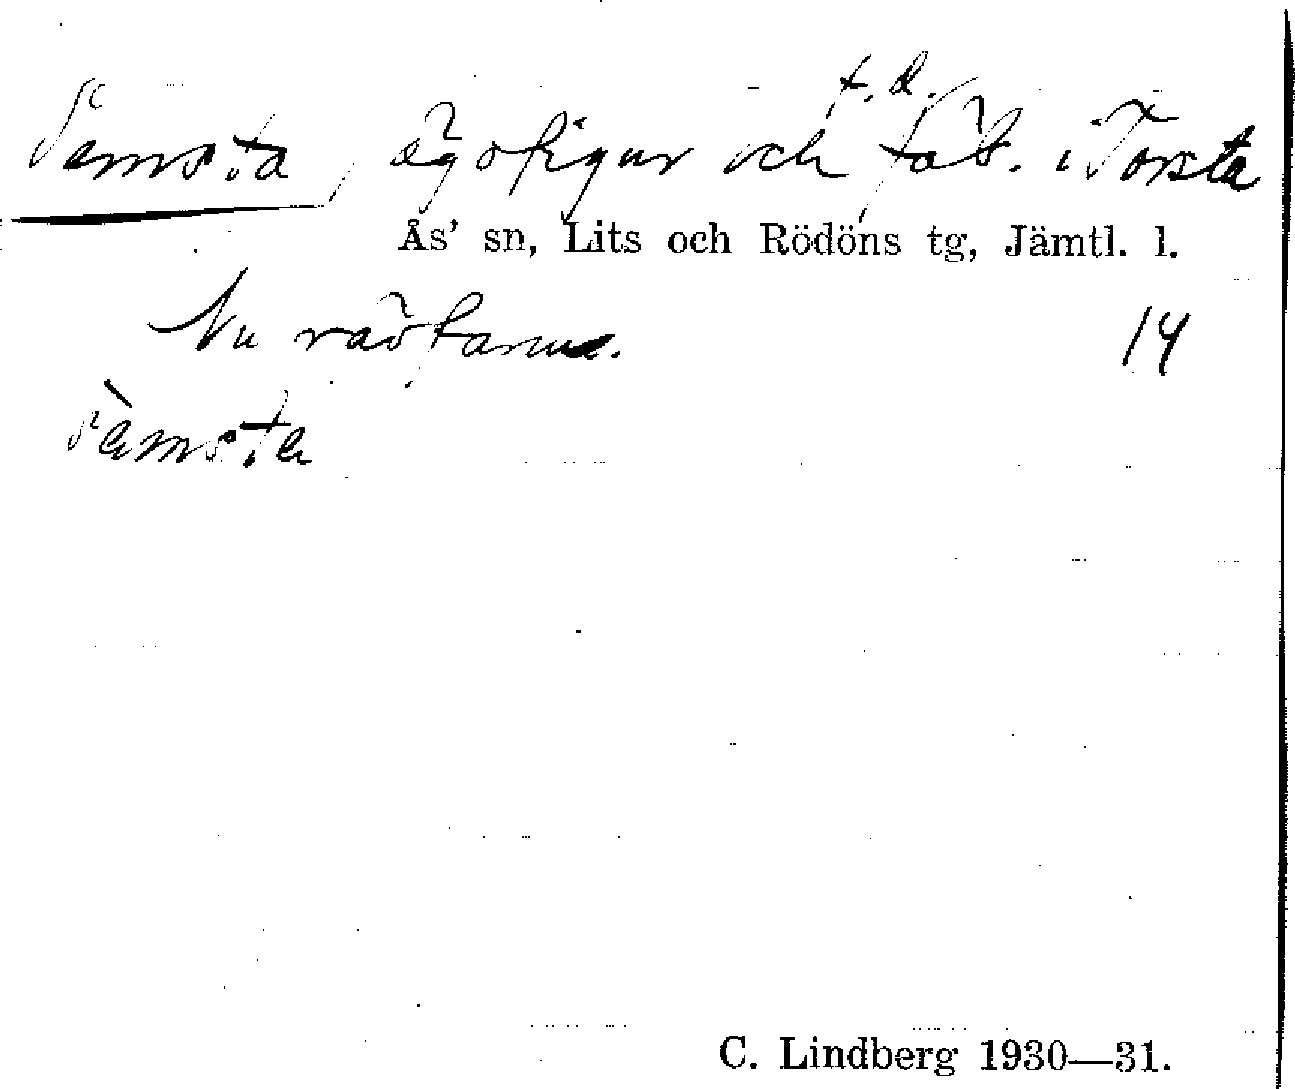 t. d.
Semsta, ägofigur och fäb. i Torsta
Ås' sn, Lits och Rödöns tg, Jämtl. l.
Nu rävfarm. 14
sèmsta
C. Lindberg 1930—31.